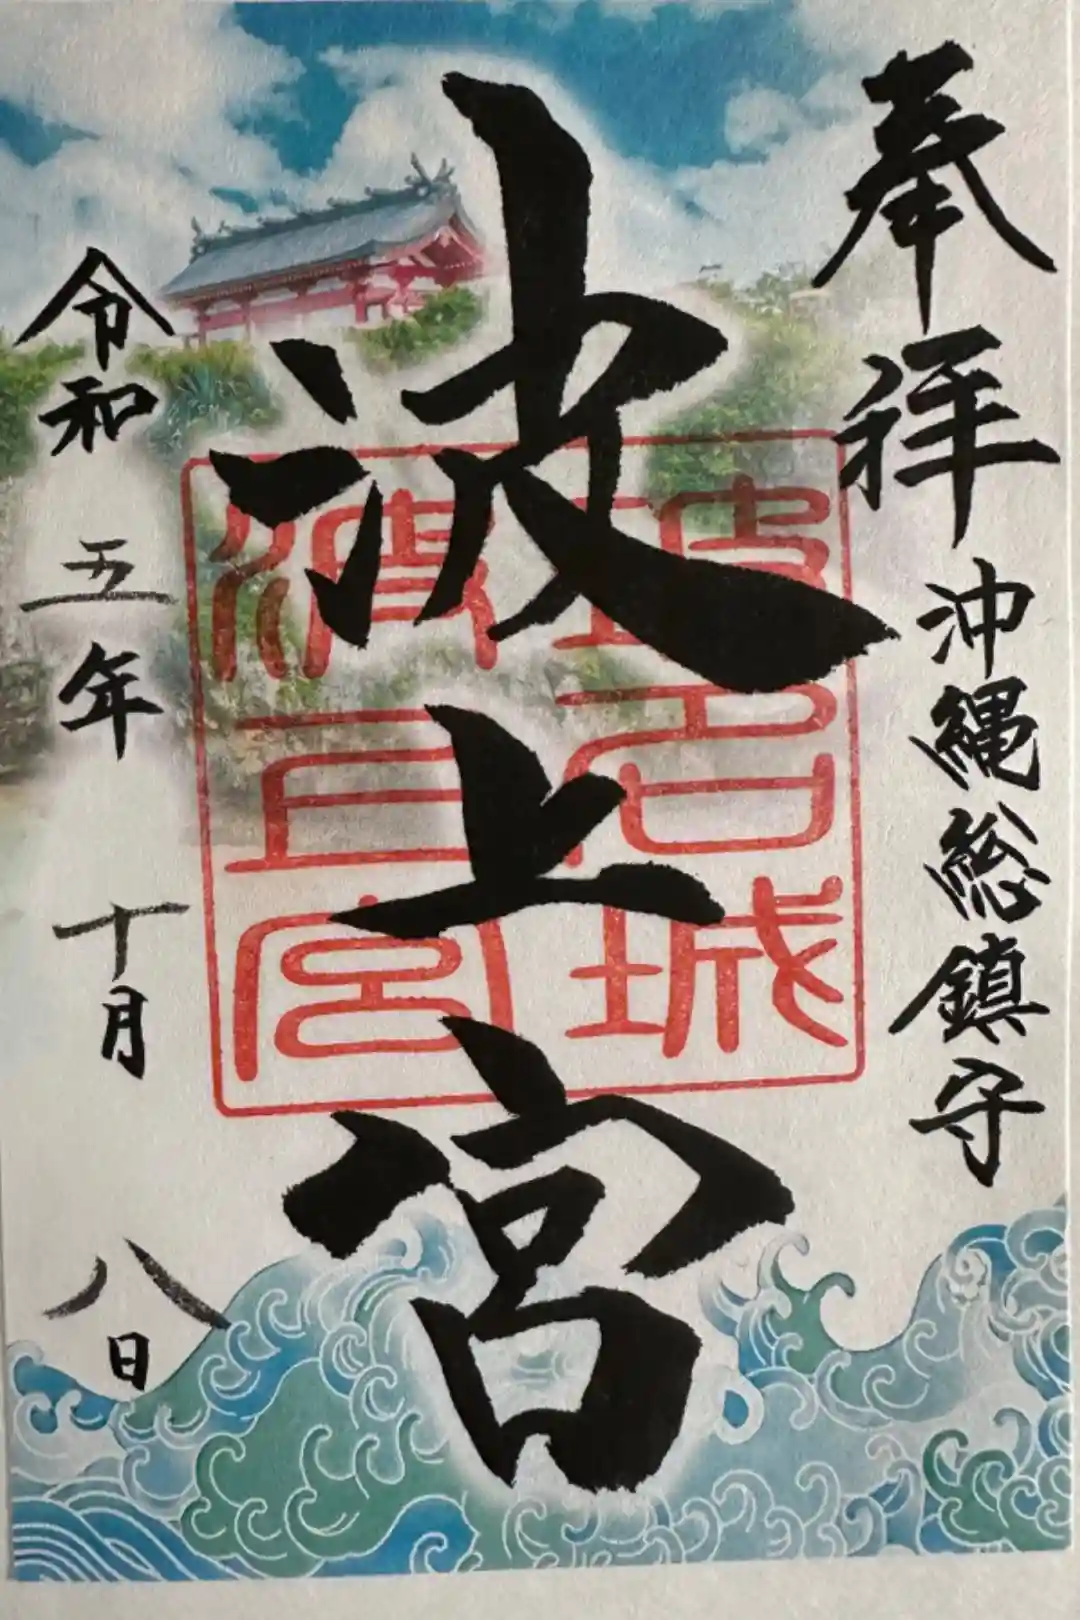 奉拝
沖縄総鎮守
波上宮
令和五年十月八日
波上宮